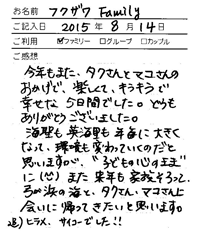 お名前 フクザワ Family
ご記入日 2015年 8月 14日
ご利用 ☑ファミリー □グループ □カップル
ご感想
今年もまた、タクさんとマコさんの
おかげで、楽しくて、キラキラで
幸せな 5日間でした。どうも
ありがとうございました。
海聖も英海里も年毎に大きく
なって、環境も変わっていくのだと
思いますが、"子どもの心のまま"
に(心) また来年も家族そろって、
ろが浜の海と、タクさん、マコさんに
会いに帰ってきたいと思います。
追)ヒラメ、サイコーでした!!